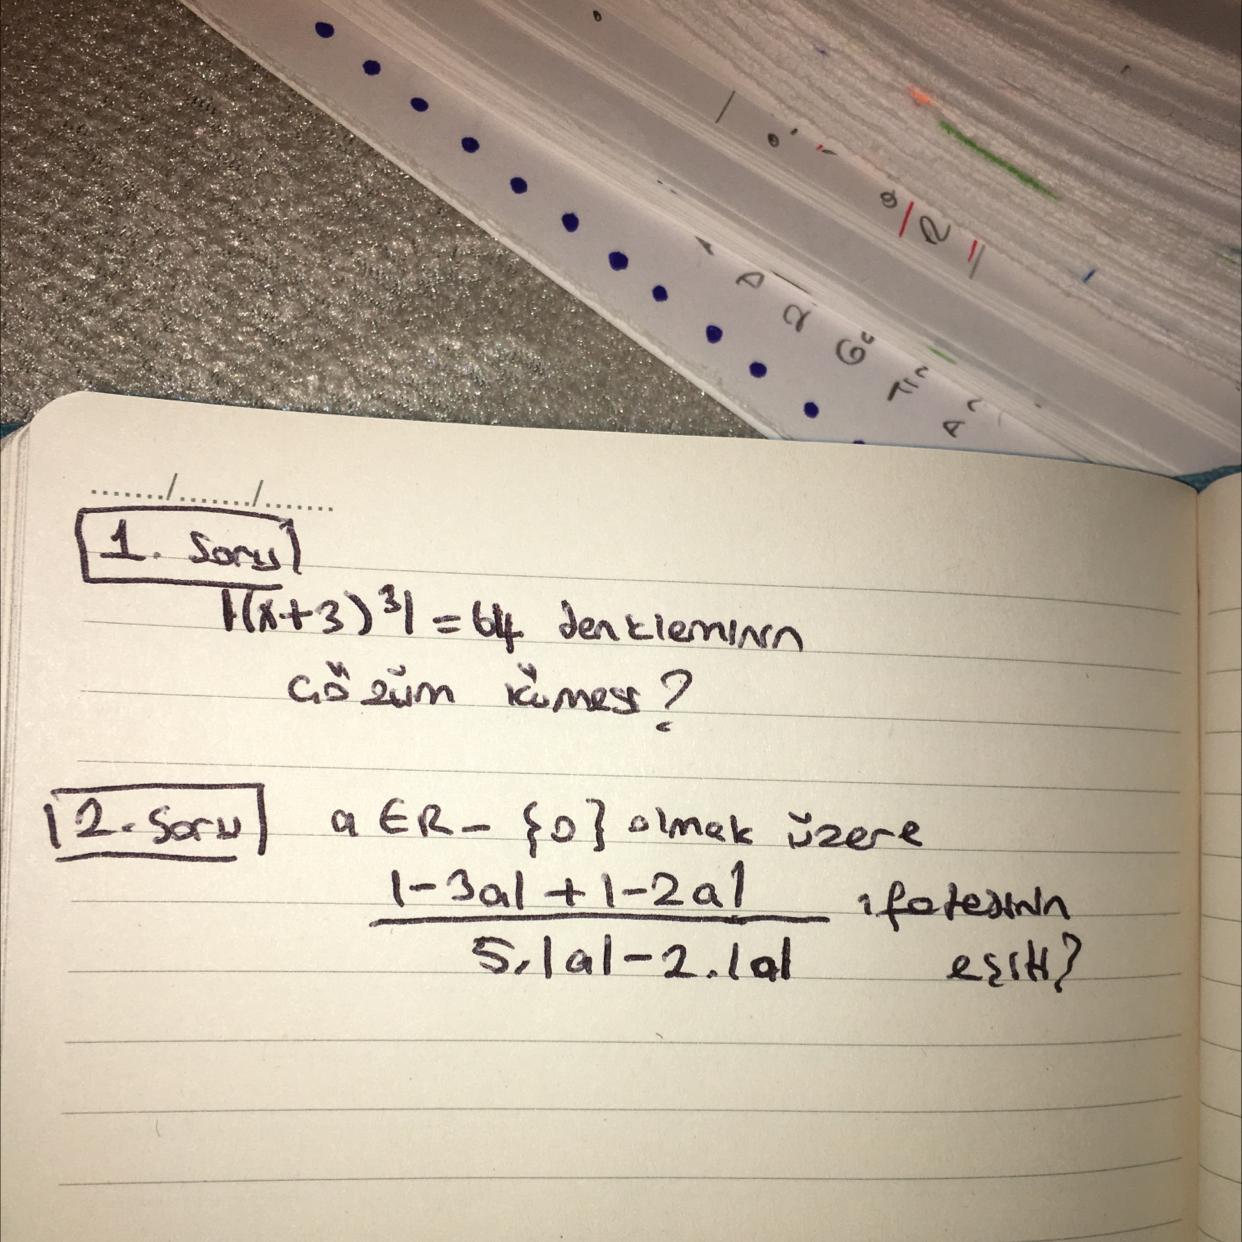 ...../...../.....
1. Soru
|(x+3)³| = 64 denkleminin
çözüm kümesi?
2. Soru a ∈ R - {0} olmak üzere
|-3a| + |-2a| ifadesinin
5.|a| - 2.|a| eşiti?